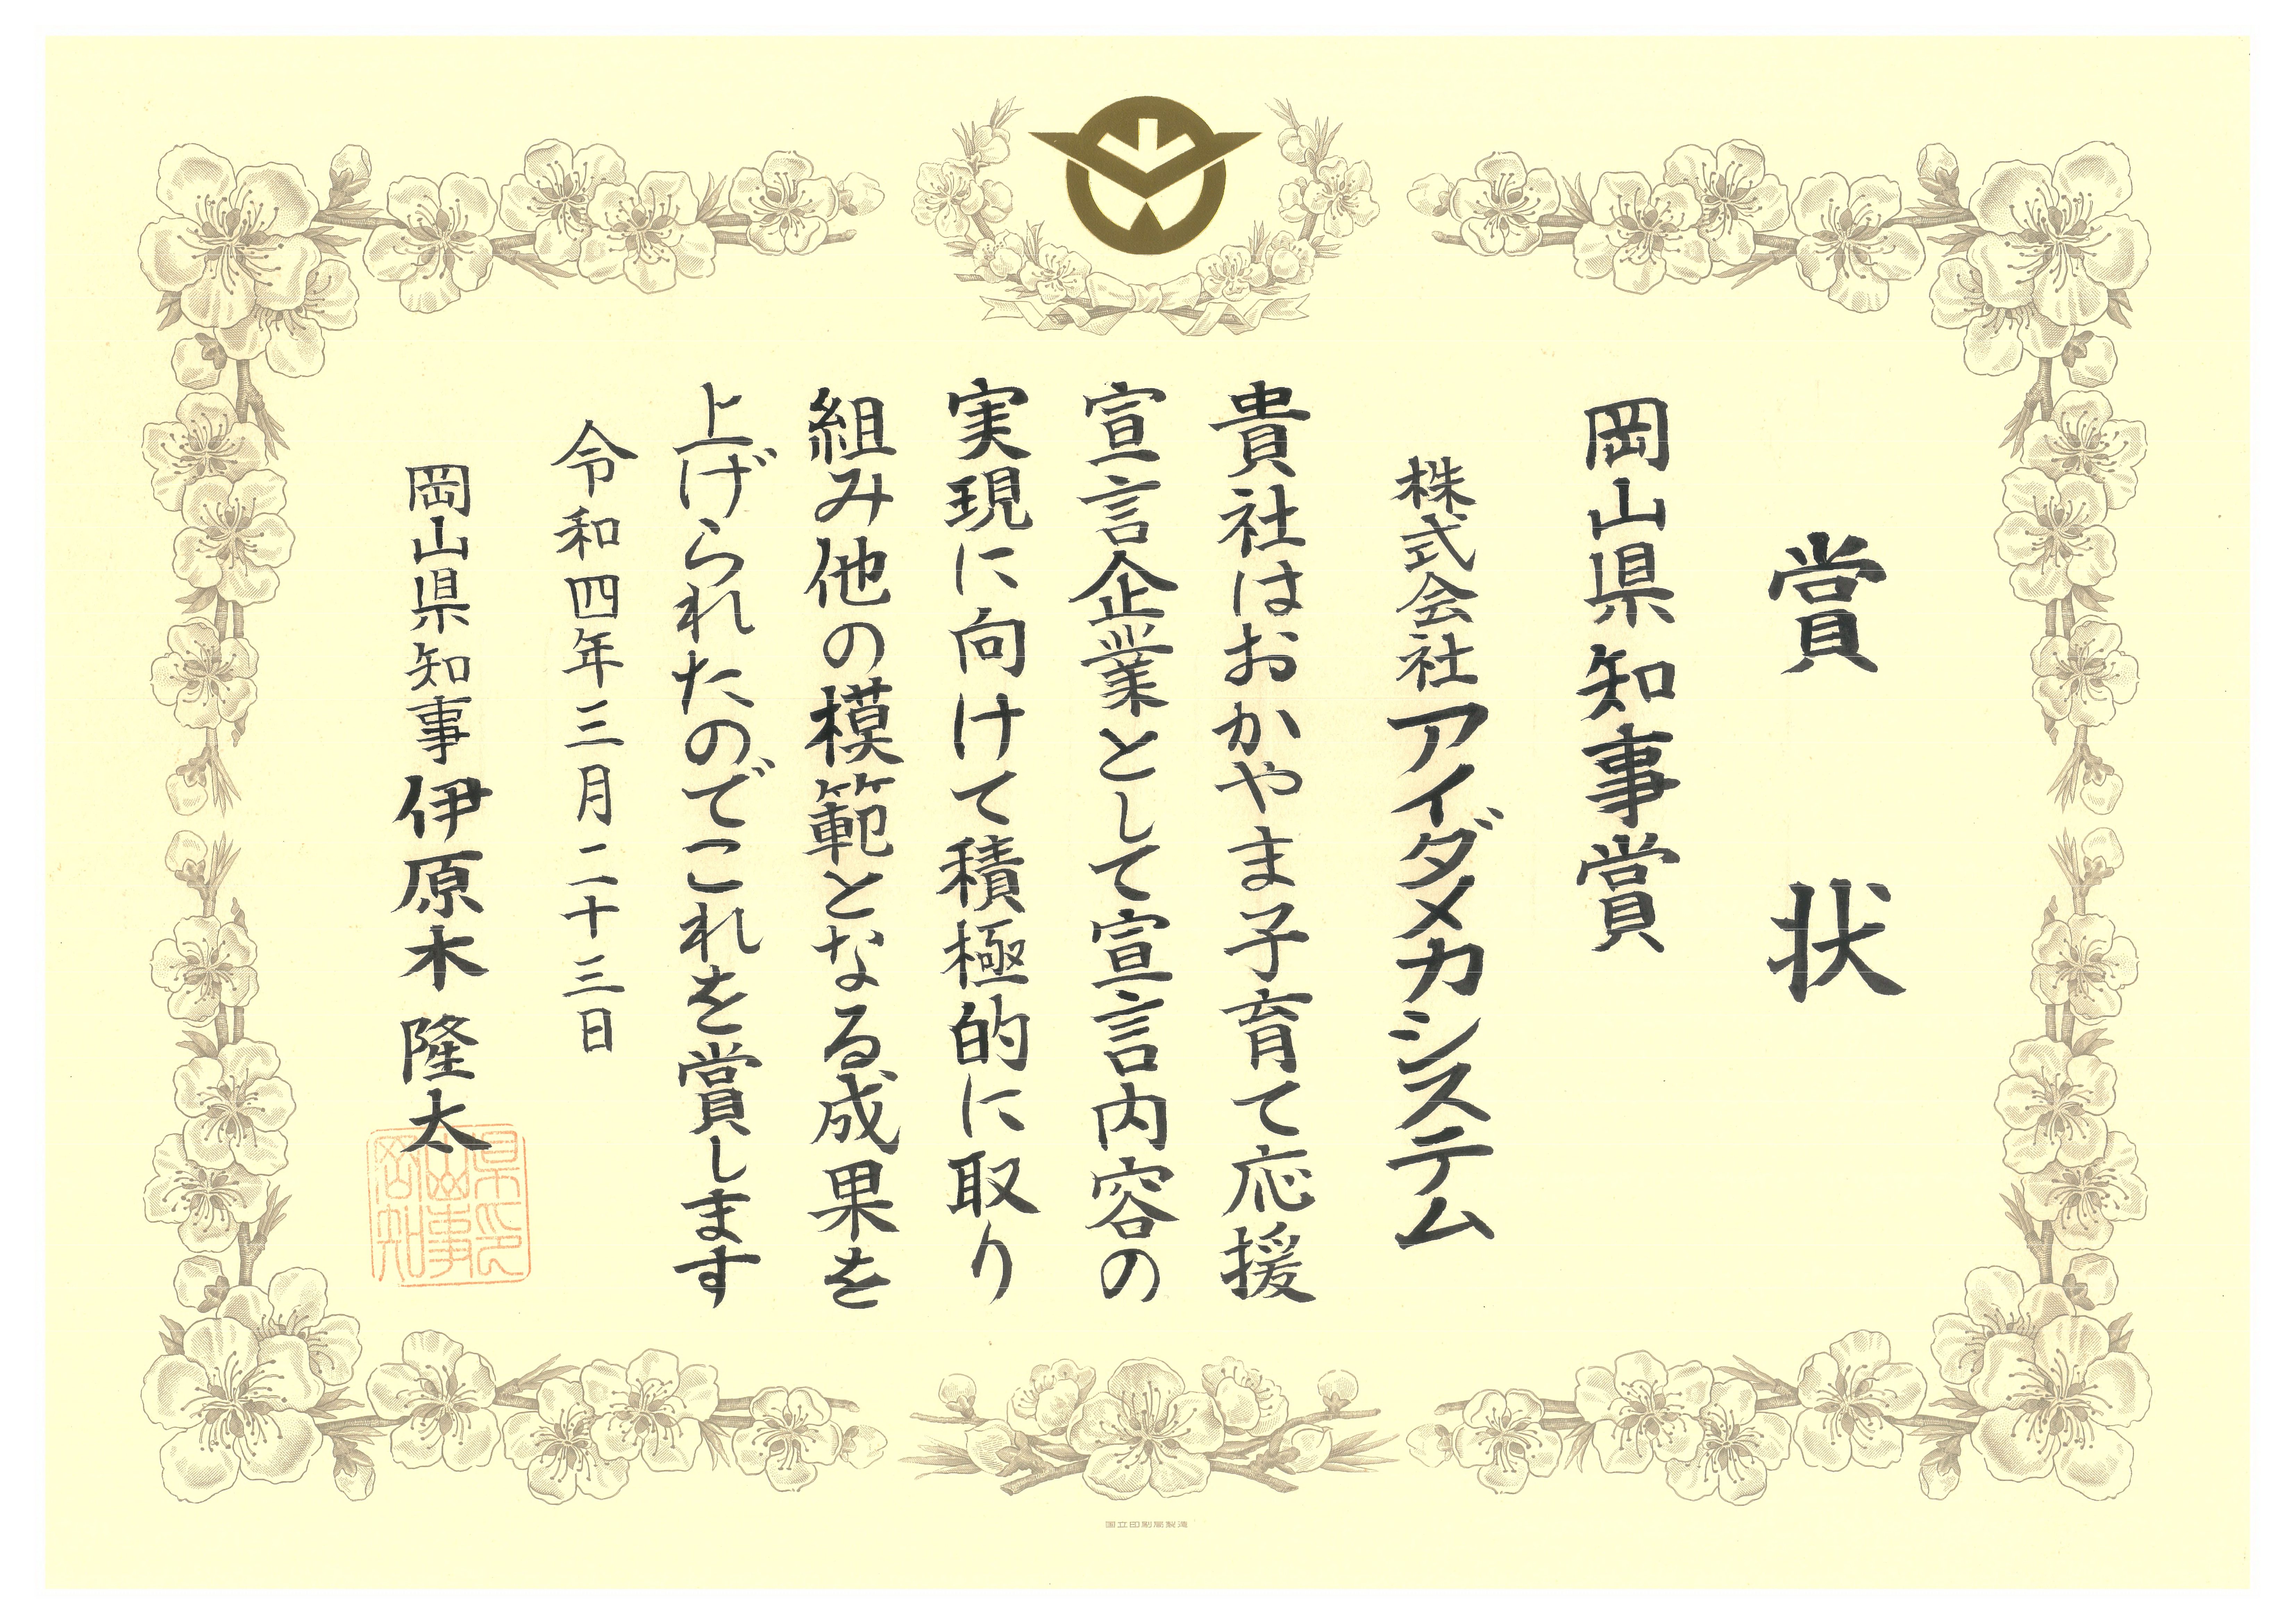 賞状
岡山県知事賞
株式会社アイダメカシステム
貴社はおかやま子育て応援
宣言企業として宣言内容の
実現に向けて積極的に取り
組み他の模範となる成果を
上げられたのでこれを賞します
令和四年三月二十三日
岡山県知事伊原木隆太
岡山県知事印
国立印刷局製造